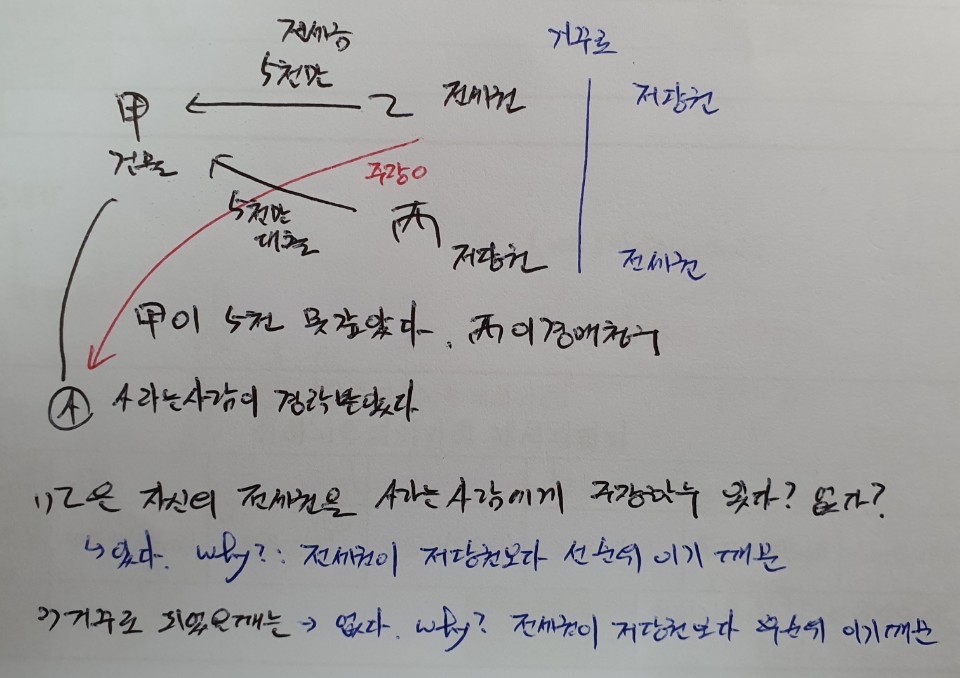 전세금
5천만
거꾸로
甲
乙
전세권
저당권
건물
주장O
5천만
대출
丙
저당권
전세권
甲이 5천 못갚았다. 丙이경매청구
A
A라는사람이 경락받았다
1) 乙은 자신의 전세권을 A라는사람에게 주장할수 있다? 없다?
↳ 있다. why?: 전세권이 저당권보다 선순위 이기 때문
2) 거꾸로 되었을때는 → 없다. why? 전세권이 저당권보다 후순위 이기때문